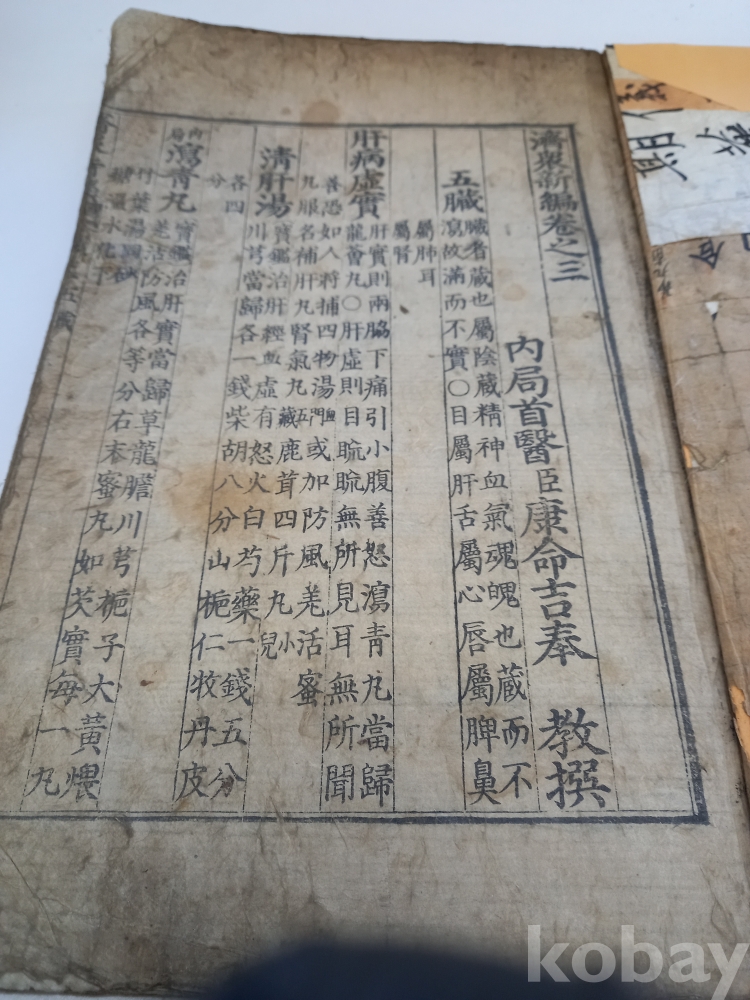 濟衆新編卷之三
內局首醫臣康命吉奉 教撰
五臟 臟者藏也屬陰藏精神血氣魂魄也藏而不
瀉故滿而不實○目屬肝舌屬心唇屬脾鼻
屬肺耳
屬腎
肝病虛實 肝實則兩脇下痛引小腹善怒瀉靑丸當歸
龍薈丸○肝虛則目䀮䀮無所見耳無所聞
善恐如人將捕四物湯血門或加防風羌活蜜
丸服名補肝丸腎氣丸五藏鹿茸四斤丸小兒
淸肝湯 寶鑑治肝經血虛有怒火白芍藥一錢五分
川芎當歸各一錢柴胡八分山梔仁牧丹皮
各四
分
內局 瀉靑丸 寶鑑治肝實當歸草龍膽川芎梔子大黃煨
羌活防風各等分右末蜜丸如芡實每一丸
竹葉湯同砂
糖溫水化下
kobay